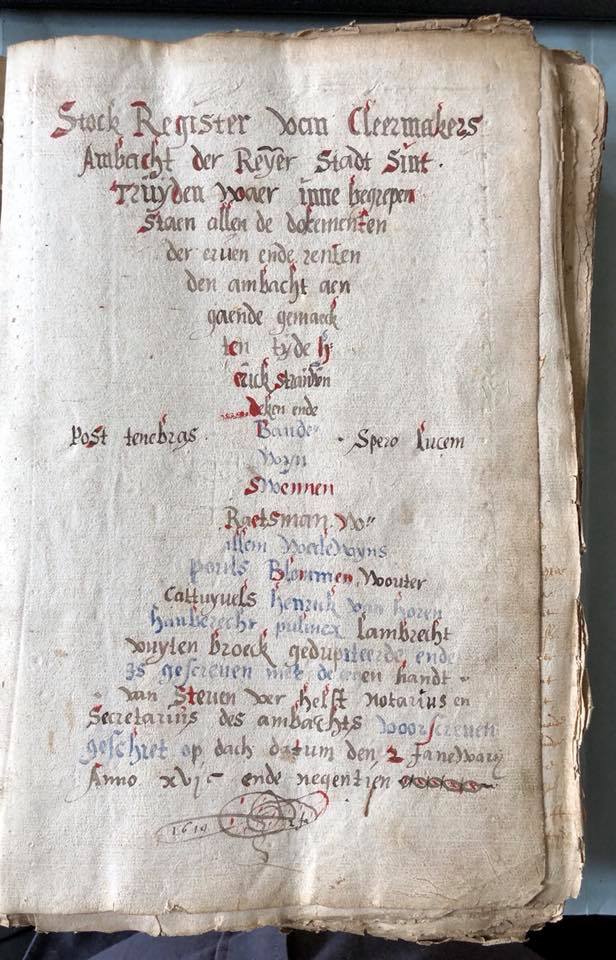 Stock Register van Cleermakers
Ambacht der Reyer Stadt Sint.
Truyden waer inne begrepen
staen allen de dokementen
der eruen ende renten
den ambacht aen
gaende gemaeck
ten tyde h
erick
deken ende
Post tenebras. Baude · Spero lucem
wyn
Swennen
Raetsman W"
illem
pouls Blommen Wouter
Cattuyuels henrick van horen
lambrecht
wuyten broeck gedeputeerde ende
Is gescreven met de eygen handt
van Steven ver helst notarius en
Secretarius des ambachts voorscreven
geschiet op dach datum den 2 Janewary
Anno xvjc ende negentien
1619